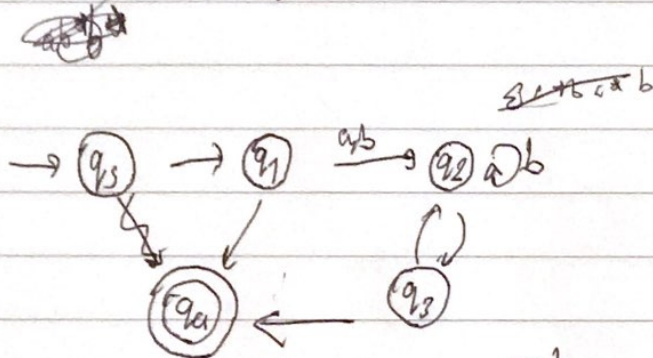 a,b
qs q1 q2 a b
qa q3